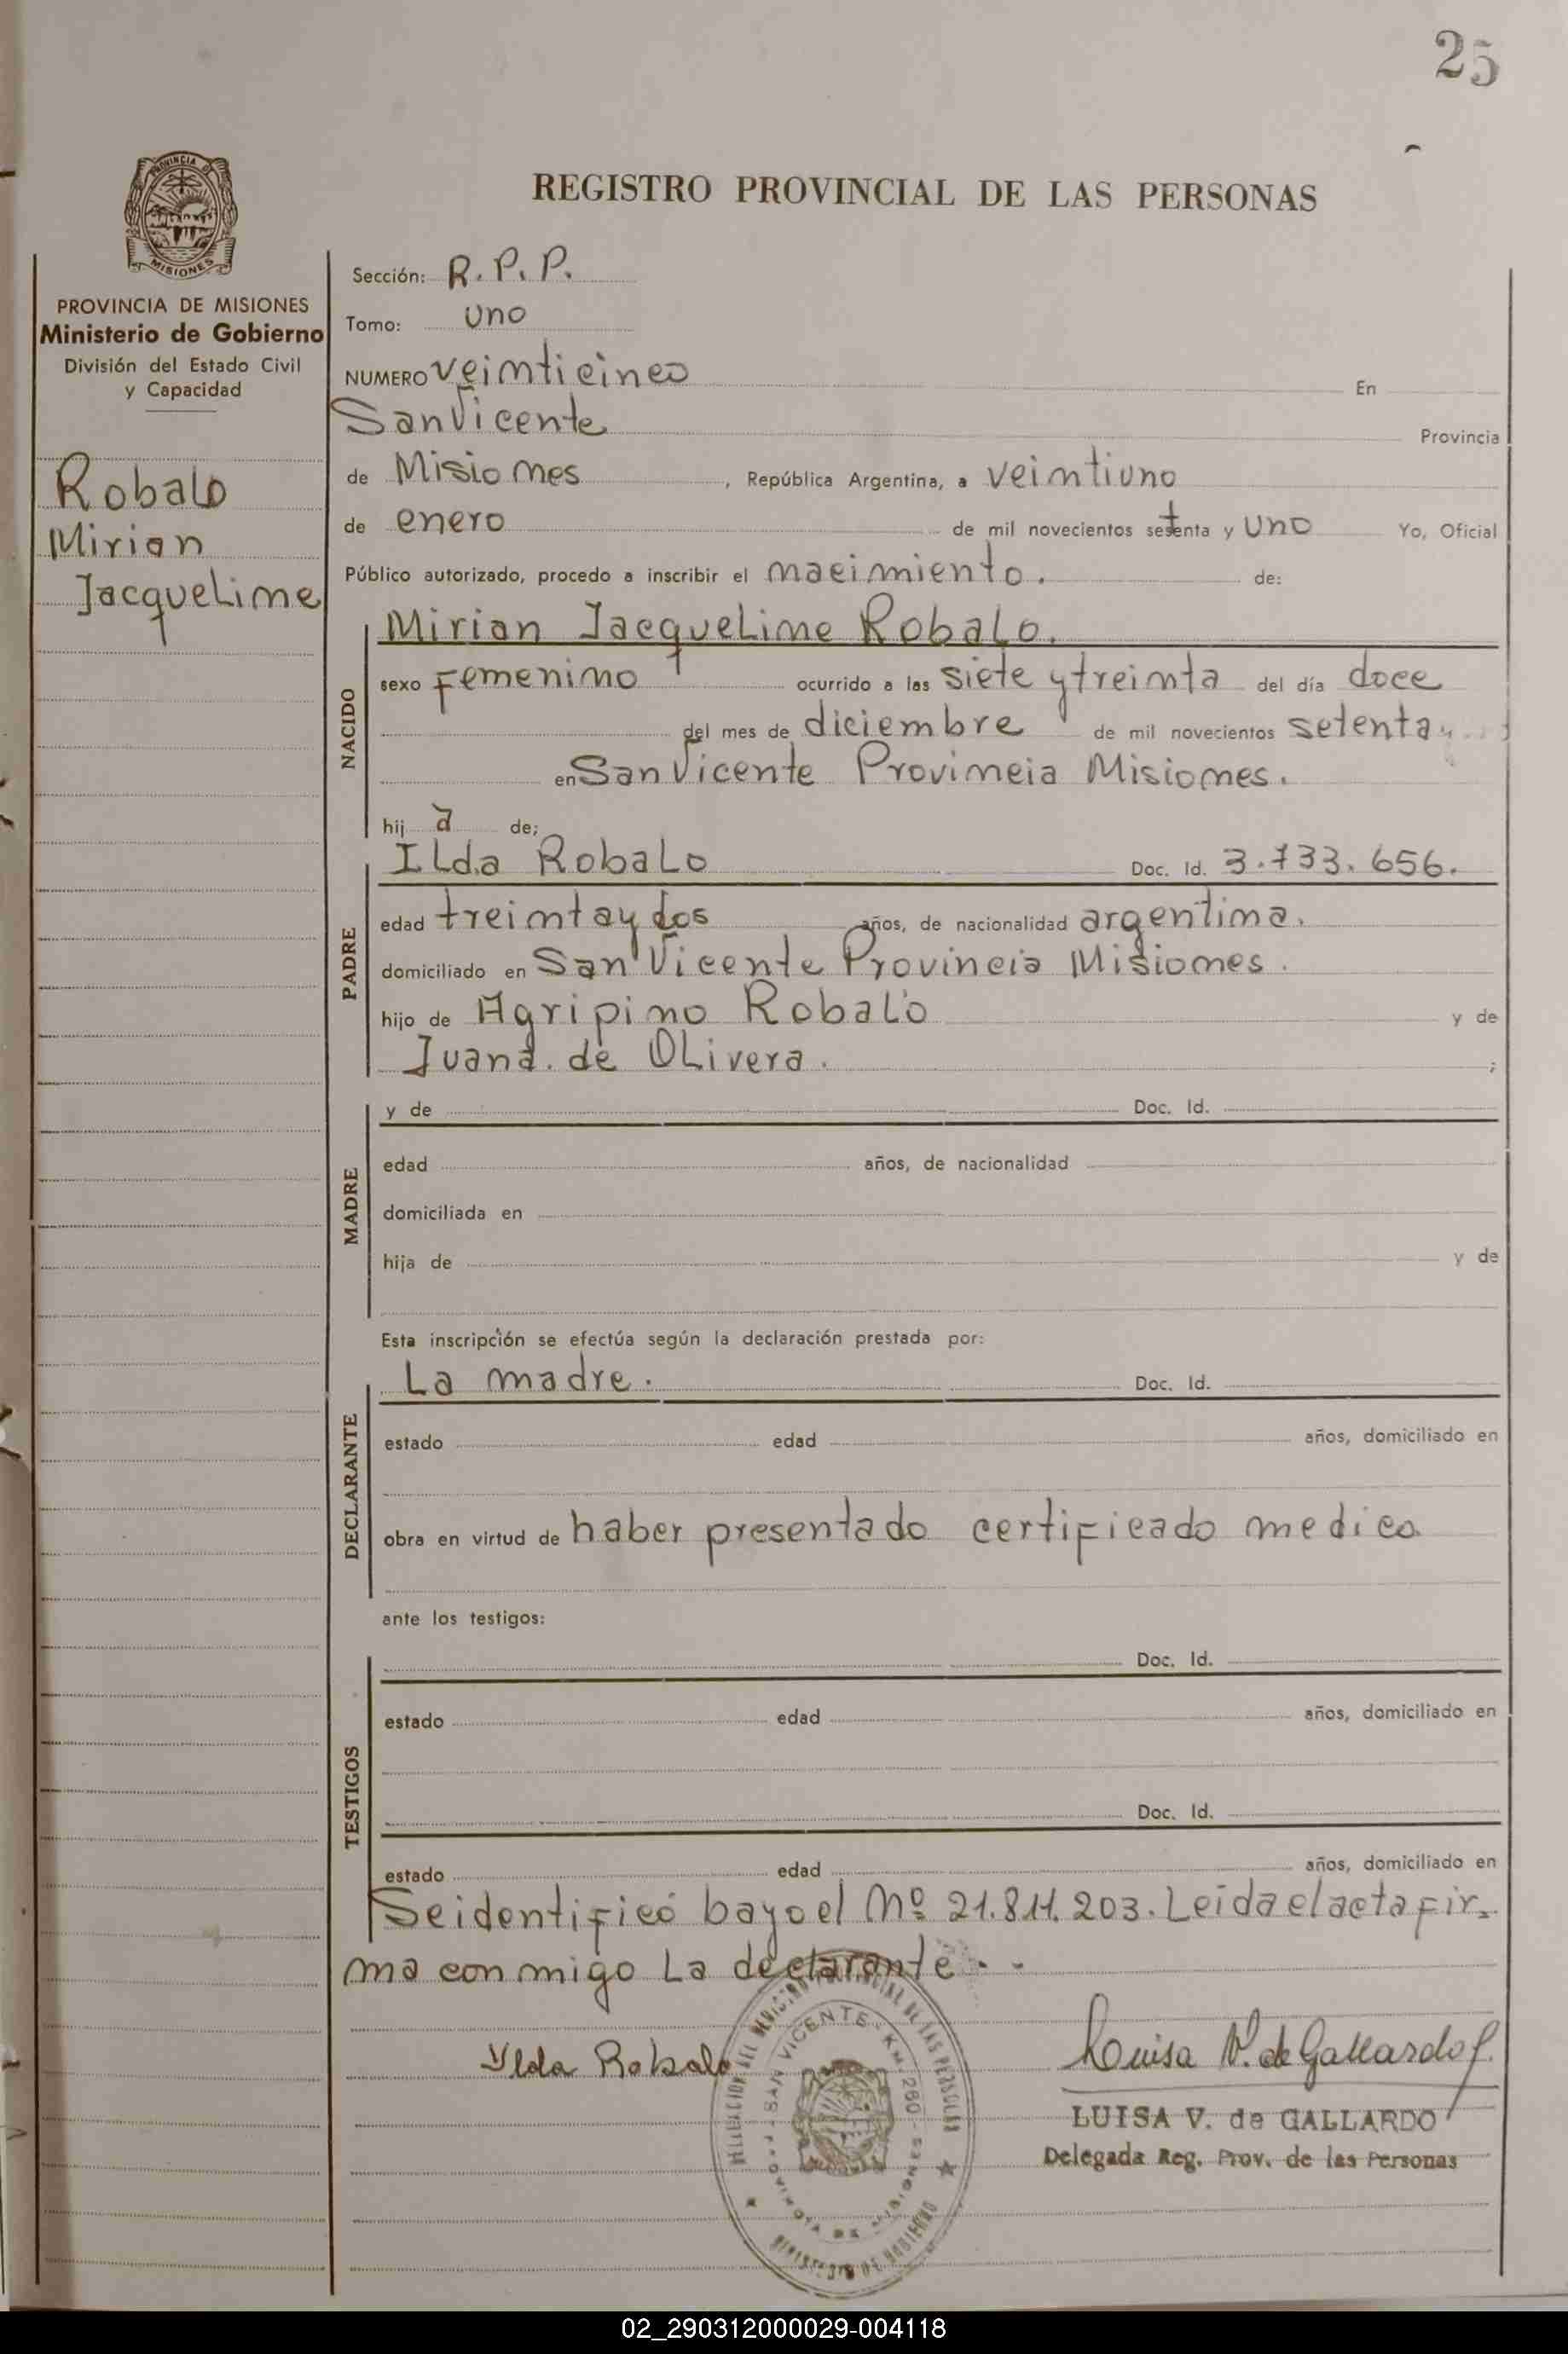 25
PROVINCIA DE
MISIONES
REGISTRO PROVINCIAL DE LAS PERSONAS
PROVINCIA DE MISIONES
Ministerio de Gobierno
División del Estado Civil
y Capacidad
Robalo
Mirian
Jacqueline
Sección: R. P. P.
Tomo: uno
NUMERO veinticinco En
San Vicente Provincia
de Misiones, República Argentina, a veintiuno
de enero de mil novecientos setenta y uno Yo, Oficial
Público autorizado, procedo a inscribir el nacimiento. de:
NACIDO
Mirian Jacqueline Robalo.
sexo femenino ocurrido a las siete y treinta del día doce
del mes de diciembre de mil novecientos setenta
en San Vicente Provincia Misiones.
hij a de;
PADRE
Ilda Robalo Doc. Id. 3.733.656.
edad treinta y dos años, de nacionalidad argentina.
domiciliado en San Vicente Provincia Misiones.
hijo de Agripino Robalo y de
Juana. de Olivera. ;
MADRE
y de Doc. Id.
edad años, de nacionalidad
domiciliada en
hija de y de
Esta inscripción se efectúa según la declaración prestada por:
DECLARANTE
La madre. Doc. Id.
estado edad años, domiciliado en
obra en virtud de haber presentado certificado medico
ante los testigos:
TESTIGOS
Doc. Id.
estado edad años, domiciliado en
Doc. Id.
estado edad años, domiciliado en
Se identificó bayo el Nº 21.811.203. Leida el acta fir-
ma con migo La declarante. -
Ylda Robalo
Luisa V. de Gallardo
LUISA V. de GALLARDO
Delegada Reg. Prov. de las Personas
DELEGACION DEL REGISTRO PROVINCIAL DE LAS PERSONAS
SAN VICENTE - KM. 260 -
PROVINCIA DE MISIONES
MINISTERIO DE GOBIERNO
02_290312000029-004118